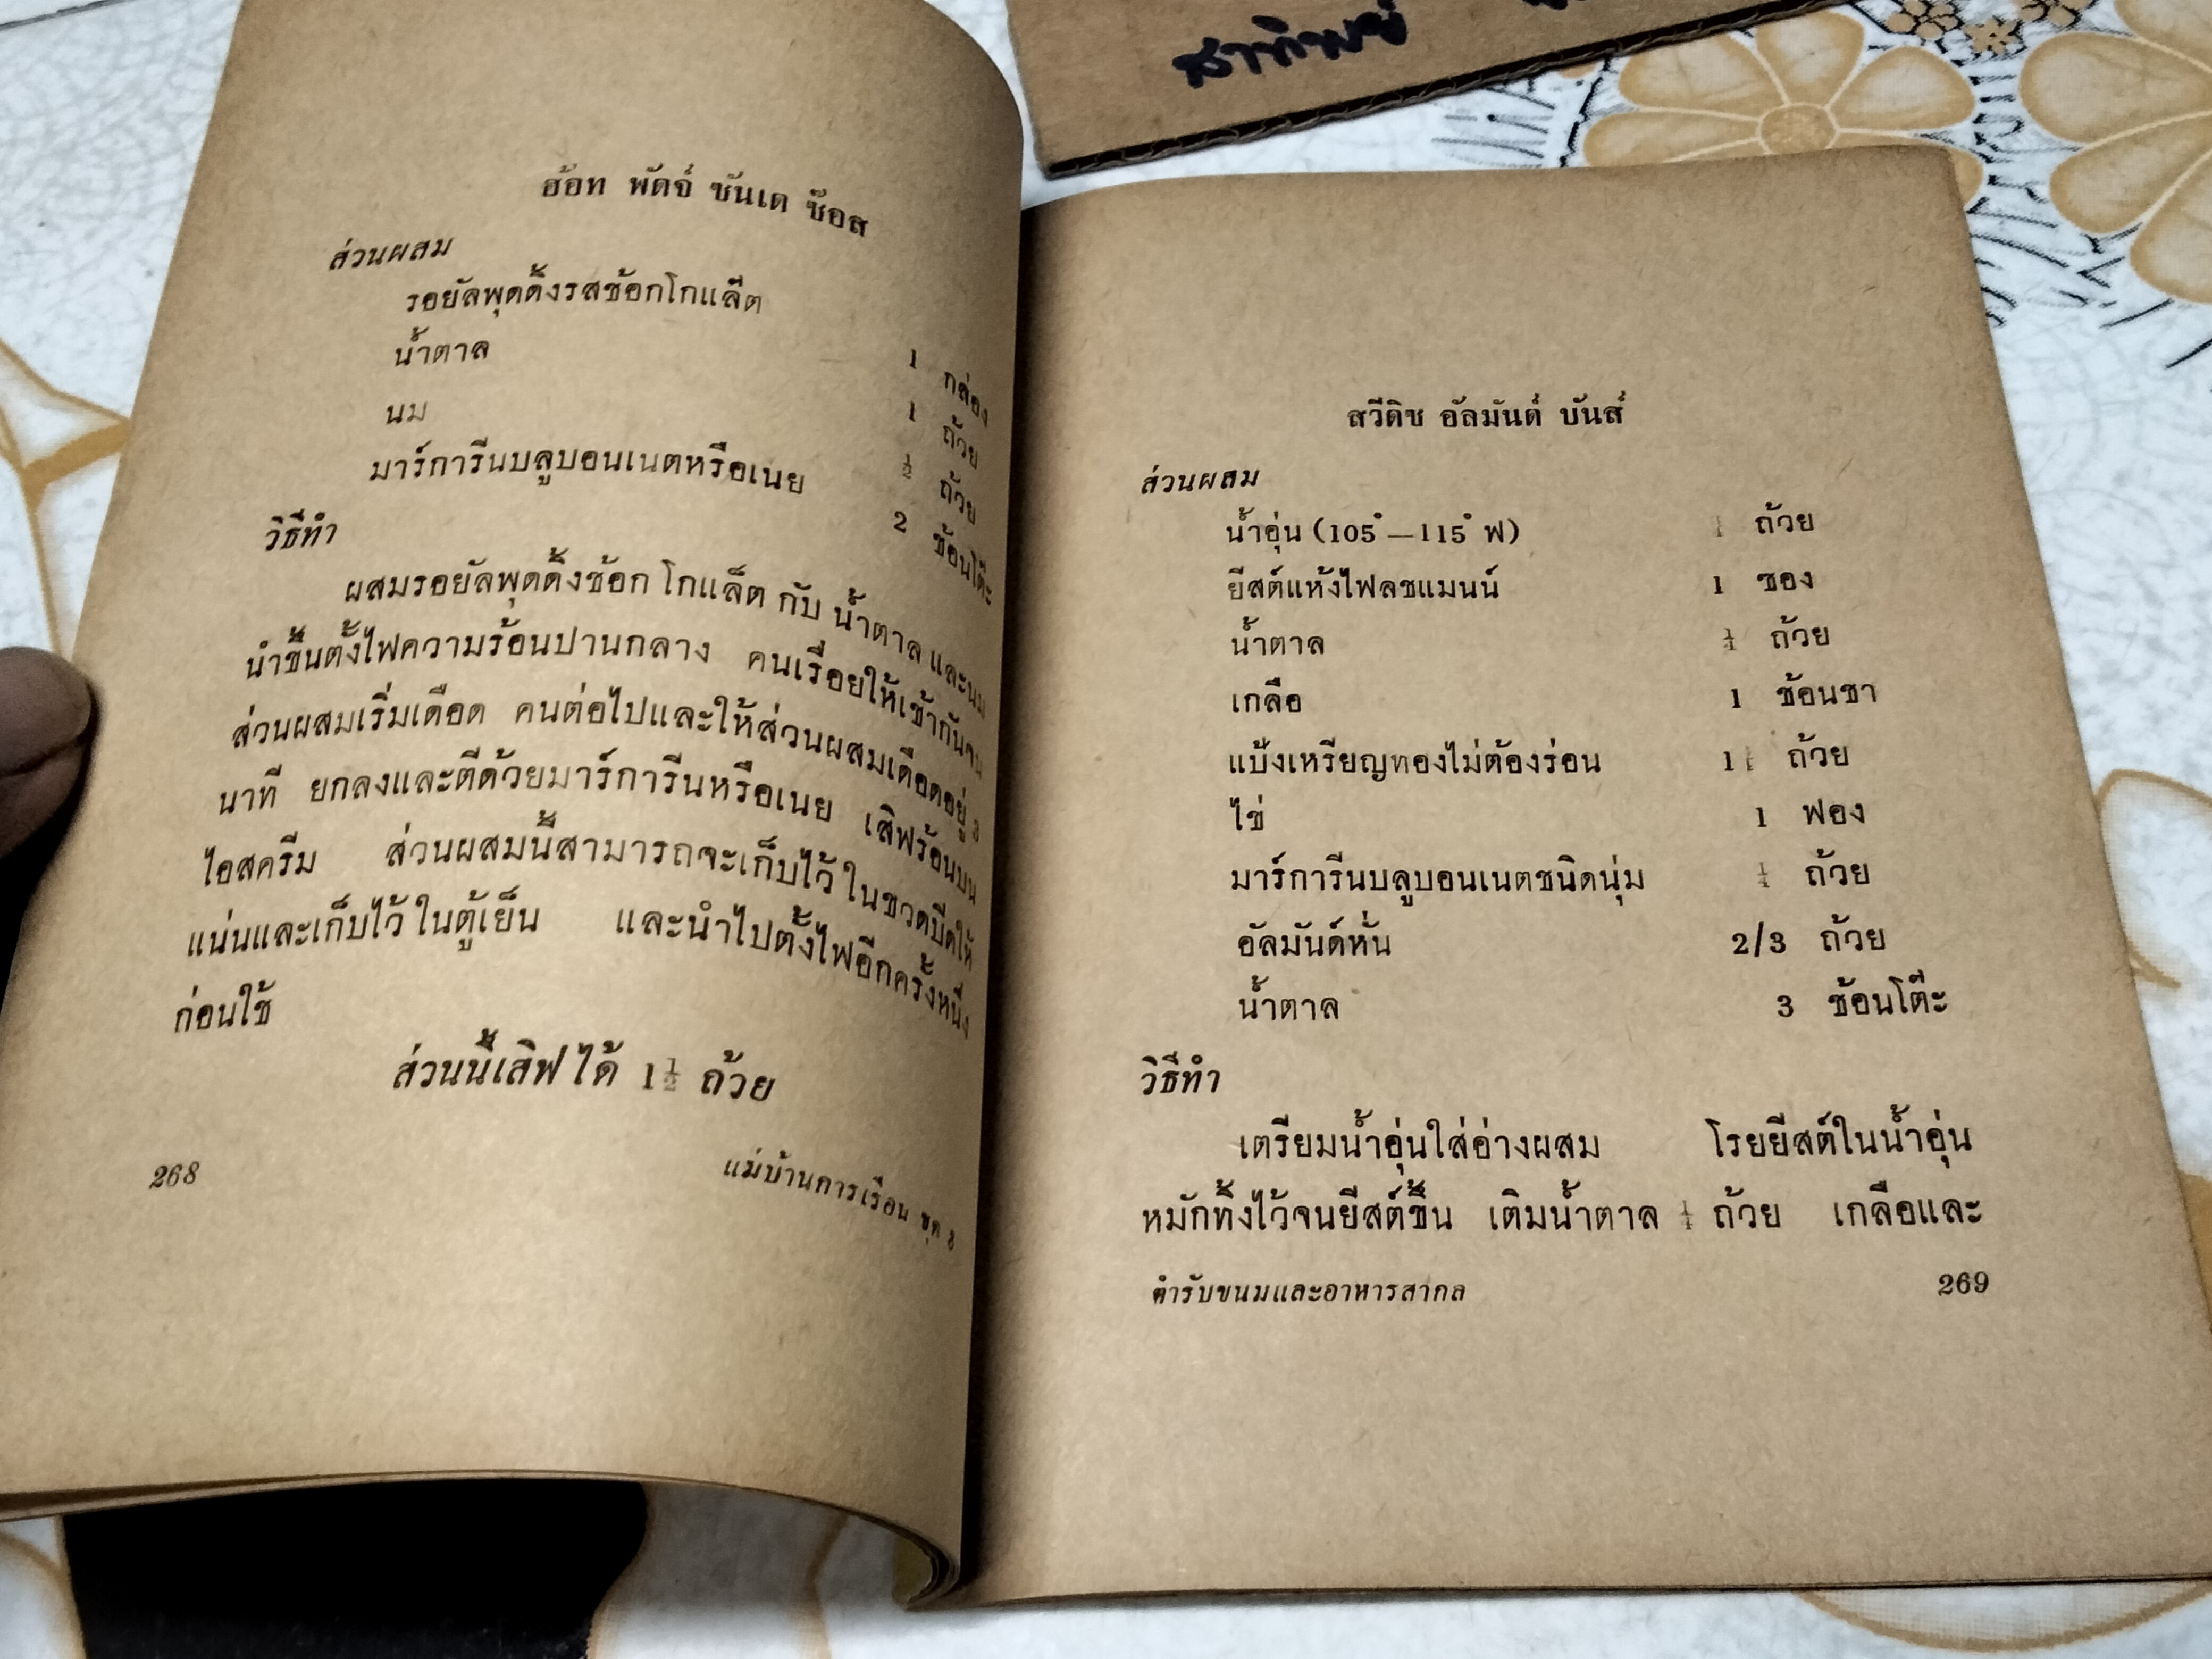 สาทิพย์
ฮ้อท พัดจ์ ซันเด ซ๊อส
ส่วนผสม
รอยัลพุดดิ้งรสช้อกโกแล็ต 1 กล่อง
น้ำตาล 1 ถ้วย
นม ½ ถ้วย
มาร์การีนบลูบอนเนตหรือเนย 2 ช้อนโต๊ะ
วิธีทำ
ผสมรอยัลพุดดิ้งช้อกโกแล็ต กับ น้ำตาล และนม
นำขึ้นตั้งไฟความร้อนปานกลาง คนเรื่อยให้เข้ากันจน
ส่วนผสมเริ่มเดือด คนต่อไปและให้ส่วนผสมเดือดอยู่ 3
นาที ยกลงและตีด้วยมาร์การีนหรือเนย เสิฟร้อนบน
ไอสครีม ส่วนผสมนี้สามารถจะเก็บไว้ในขวดปิดให้
แน่นและเก็บไว้ในตู้เย็น และนำไปตั้งไฟอีกครั้งหนึ่ง
ก่อนใช้
ส่วนนี้เสิฟได้ 1½ ถ้วย
268 แม่บ้านการเรือน ชุด 8
สวีดิช อัลมันด์ บันส์
ส่วนผสม
น้ำอุ่น (105° — 115° ฟ) ถ้วย
ยีสต์แห้งไฟลชแมนน์ 1 ซอง
น้ำตาล ¼ ถ้วย
เกลือ 1 ช้อนชา
แป้งเหรียญทองไม่ต้องร่อน 1 ถ้วย
ไข่ 1 ฟอง
มาร์การีนบลูบอนเนตชนิดนุ่ม ¼ ถ้วย
อัลมันด์หั่น 2/3 ถ้วย
น้ำตาล 3 ช้อนโต๊ะ
วิธีทำ
เตรียมน้ำอุ่นใส่อ่างผสม โรยยีสต์ในน้ำอุ่น
หมักทิ้งไว้จนยีสต์ขึ้น เติมน้ำตาล ¼ ถ้วย เกลือและ
ตำรับขนมและอาหารสากล 269